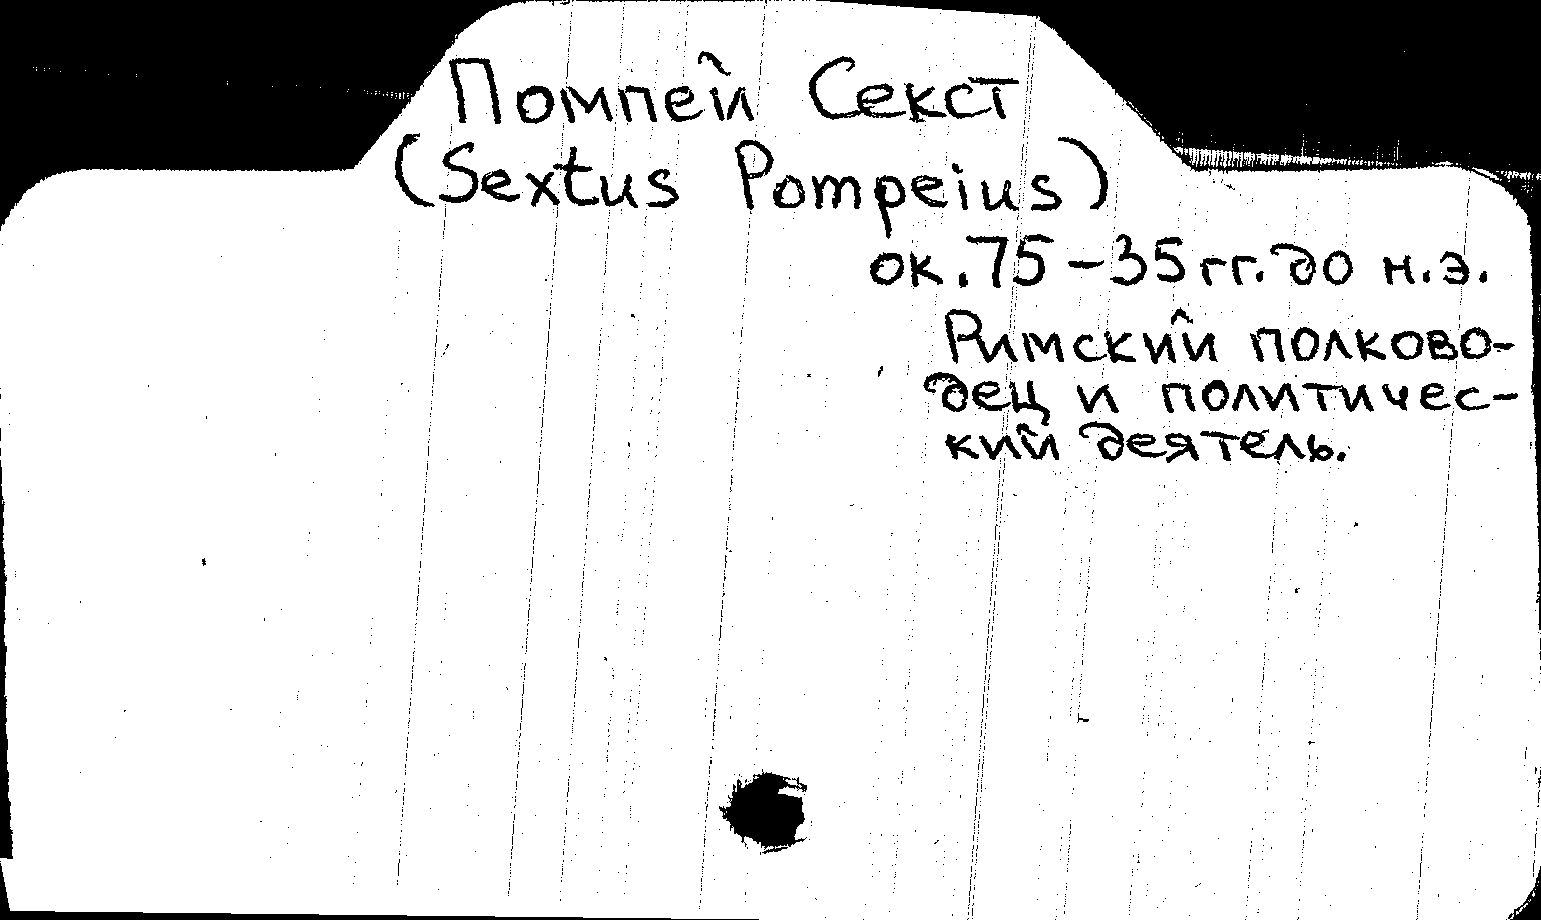 Помпей Секст
(Sextus Pompeius)
ок. 75-35 гг. до н.э.
Римский полково-
дец и политичес-
кий деятель.